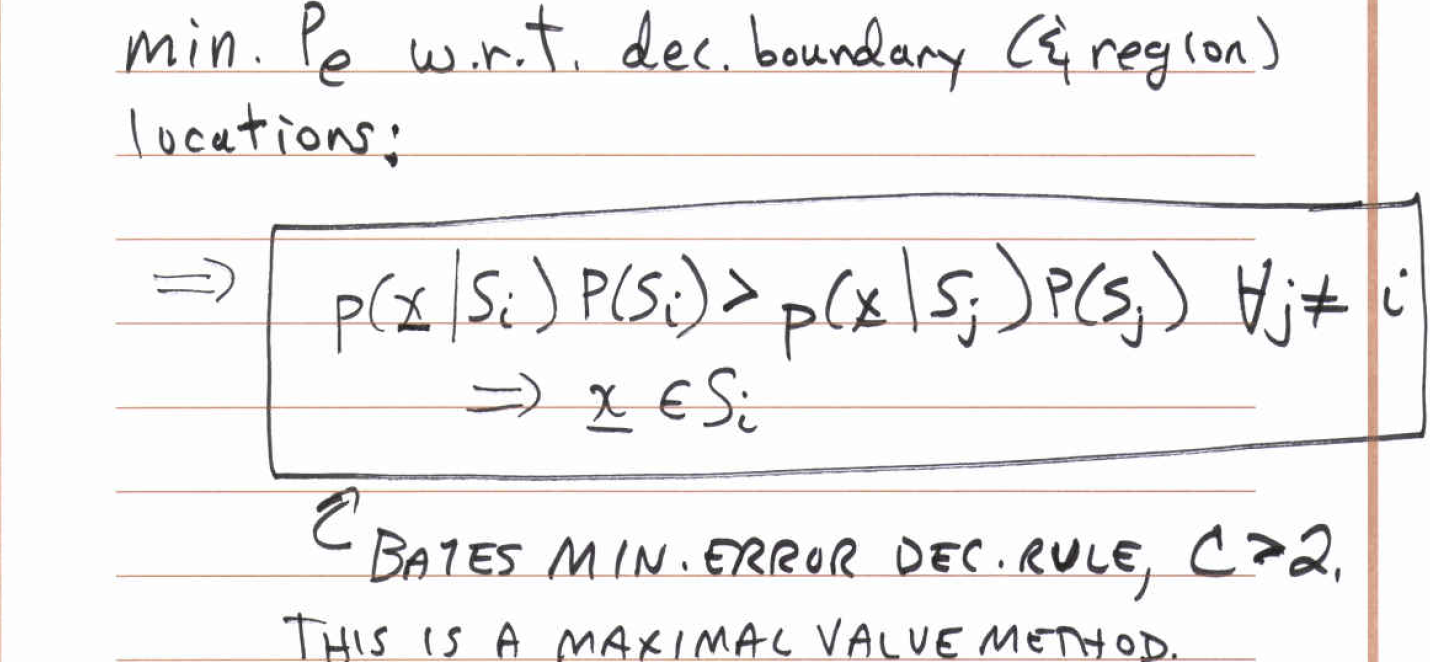 min. Pe w.r.t. dec. boundary (& region)
locations:
⇒ p(x|Si) P(Si) > p(x|Sj) P(Sj) ∀j≠i
⇒ x ∈ Si
BAYES MIN. ERROR DEC. RULE, C>2.
THIS IS A MAXIMAL VALUE METHOD.